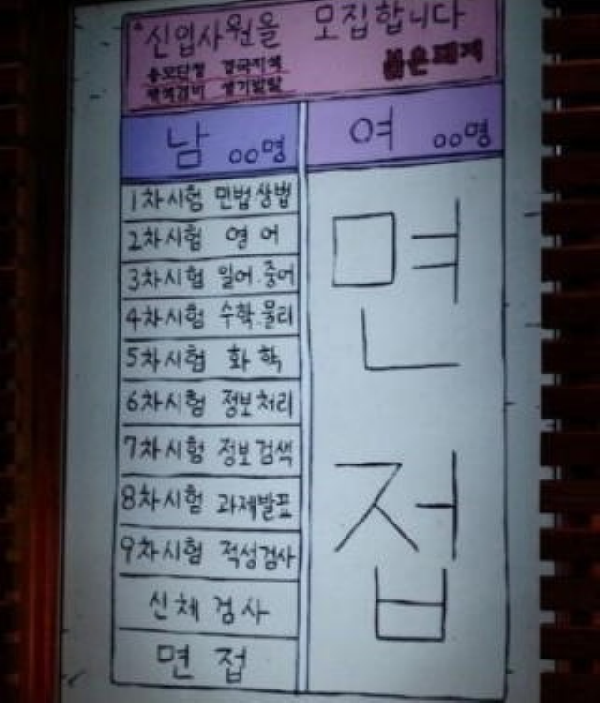 "신입사원을 모집합니다
용모단정 경국지색
재색겸비 생기발랄
붉은돼지
남 00명
여 00명
1차시험 민법상법
2차시험 영어
3차시험 일어.중어
4차시험 수학.물리
5차시험 화학
6차시험 정보처리
7차시험 정보검색
8차시험 과제발표
9차시험 적성검사
신체검사
면접
면
접